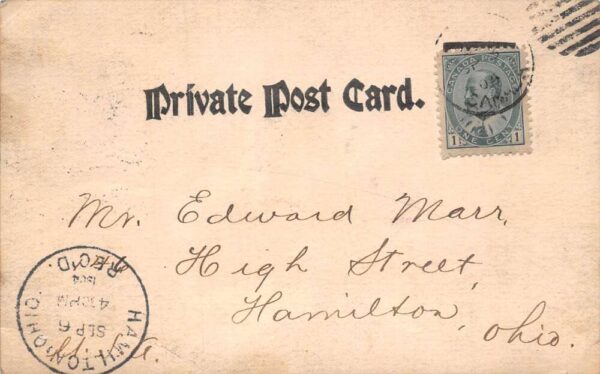 Private Post Card.
CANADA POSTAGE
1 ONE CENT 1
Mr. Edward Marr,
High Street,
Hamilton, Ohio.
U.S.A.
HAMILTON, OHIO
SEP 6
1904
REC'D.